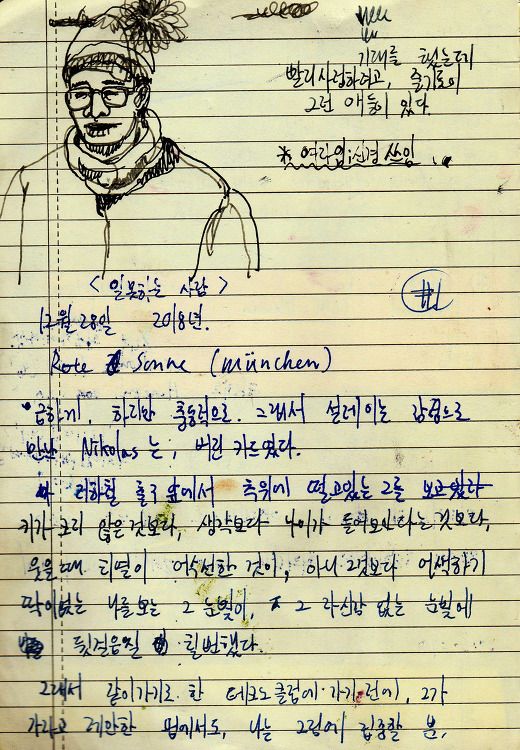 기대를 했는데
빨리시럽하려고, 즐기로이
그런 애들이 있다.
* 여라업; 신경 쓰임
< 일못하는 사람 >
#1
12월 28일 2018년.
Rote Sonne (münchen)
급하게, 하지만 충동적으로. 그래서 설레이는 감정으로
만난 Nikolas는, 버린 카드였다.
지하철 출구 앞에서 추위에 떨고있는 그를 보고있다
키가 크지 않은 것보다, 생각보다 나이가 들어보인다는 것보다,
웃을때 치열이 어색한 것이, 아니 그것보다 어색하기
짝이없는 나를보는 그 눈빛이, 그 자신감 없는 눈빛에
뒷걸음질 칠뻔했다.
그래서 같이가기로 한 테크노 클럽에 가기 전에, 그가
가자고 제안한 펍에서도, 나는 그림에 집중할 뿐,